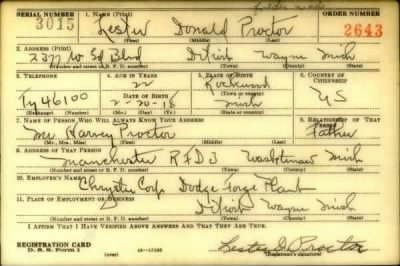 SERIAL NUMBER 1. NAME (Print) ORDER NUMBER
3015 Lester Donald Proctor 2643
(First) (Middle) (Last)
2. ADDRESS (Print)
2377 W Gd Blvd Detroit Wayne Mich
(Number and street or R. F. D. number) (Town) (County) (State)
3. TELEPHONE 4. AGE IN YEARS 5. PLACE OF BIRTH 6. COUNTRY OF CITIZENSHIP
22 Rockwood
Ty 46100 DATE OF BIRTH (Town or county)
2-20-18 Mich US
(Exchange) (Number) (Mo.) (Day) (Yr.) (State or country)
7. NAME OF PERSON WHO WILL ALWAYS KNOW YOUR ADDRESS 8. RELATIONSHIP OF THAT PERSON
Mr Harvey Proctor Father
(Mr., Mrs., Miss) (First) (Middle) (Last)
9. ADDRESS OF THAT PERSON
Manchester RFD 3 Washtenaw Mich
(Number and street or R. F. D. number) (Town) (County) (State)
10. EMPLOYER'S NAME
Chrysler Corp Dodge Forge Plant
11. PLACE OF EMPLOYMENT OR BUSINESS
Detroit Wayne Mich
(Number and street or R. F. D. number) (Town) (County) (State)
I AFFIRM THAT I HAVE VERIFIED ABOVE ANSWERS AND THAT THEY ARE TRUE.
REGISTRATION CARD Lester D Proctor
D. S. S. Form 1 (over) (Registrant's signature)